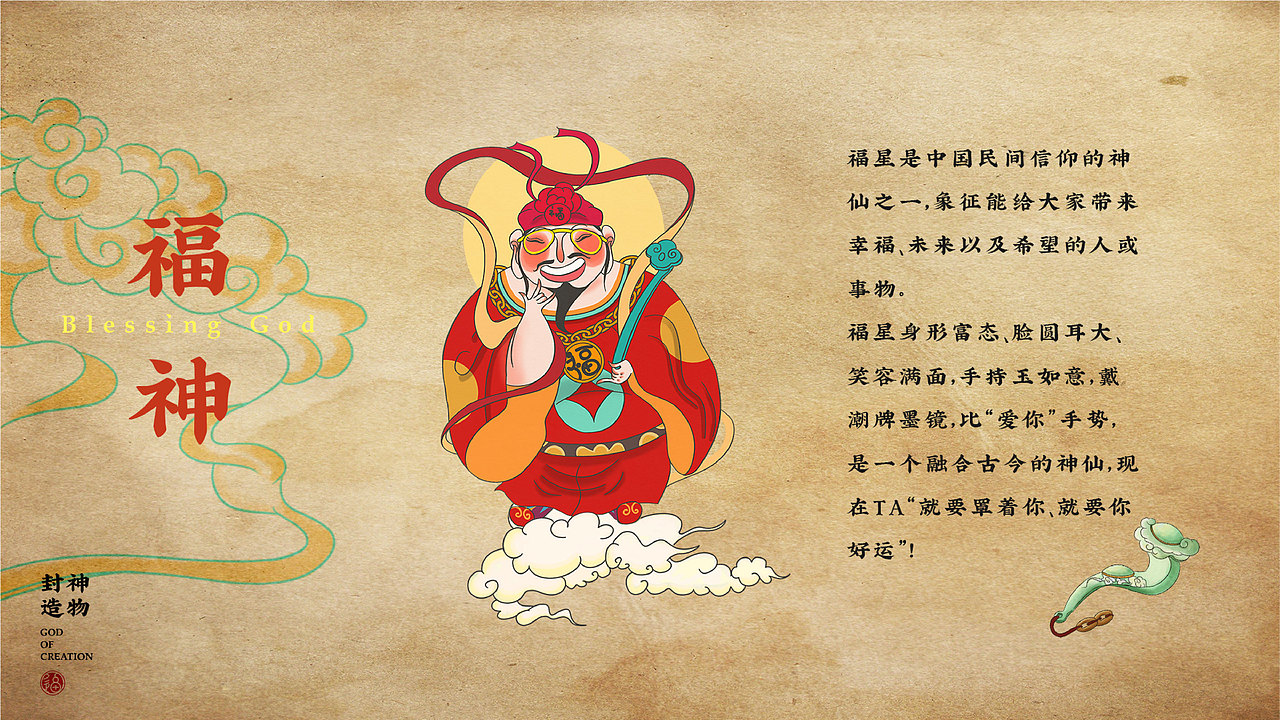 福
Blessing God
神
福
福
福星是中国民间信仰的神
仙之一,象征能给大家带来
幸福、未来以及希望的人或
事物。
福星身形富态、脸圆耳大、
笑容满面,手持玉如意,戴
潮牌墨镜,比“爱你”手势,
是一个融合古今的神仙,现
在TA“就要罩着你、就要你
好运”!
封神
造物
GOD
OF
CREATION
福